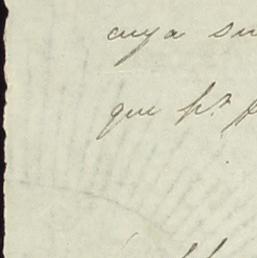 cuya su
que p.ª